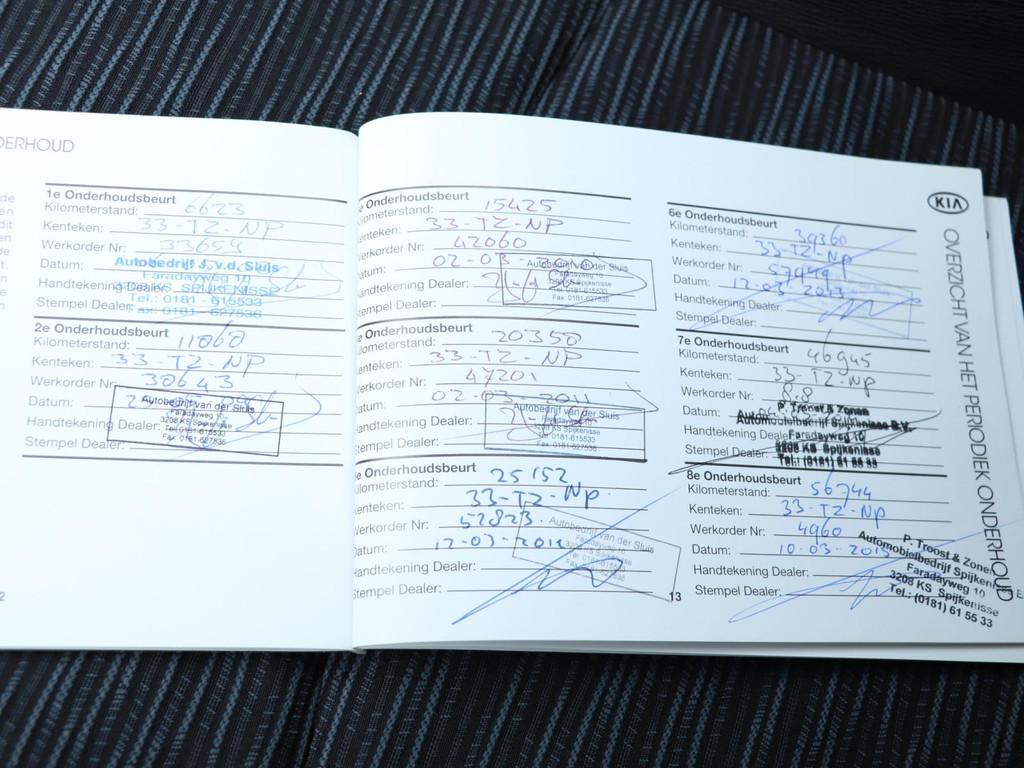 DERHOUD
1e Onderhoudsbeurt
Kilometerstand: 6623
Kenteken: 33-TZ-NP
Werkorder Nr: 33654
Datum:
Autobedrijf J.v.d. Sluis
Faradayweg 10
KS SPIJKENISSE
Tel.: 0181 - 615533
Fax: 0181-627536
Handtekening Dealer:
Stempel Dealer:
2e Onderhoudsbeurt
Kilometerstand: 11060
Kenteken: 33-TZ-NP
Werkorder Nr: 38643
Datum:
Autobedrijf van der Sluis
Faradayweg 10
3208 KS Spijkenisse
Tel. 0181-615533
Fax 0181-627536
Handtekening Dealer:
Stempel Dealer:
e Onderhoudsbeurt
Kilometerstand: 15425
enteken: 33-TZ-NP
Werkorder Nr: 42060
atum: 02-03-
Autobedrijf van der Sluis
Faradayweg 10
3208 KS Spijkenisse
Tel. 0181-615533
Fax 0181-627536
Handtekening Dealer:
Stempel Dealer:
e Onderhoudsbeurt
ilometerstand: 20350
enteken: 33-TZ-NP
erkorder Nr: 47201
atum: 02-03-2011
Autobedrijf van der Sluis
Faradayweg 10
3208 KS Spijkenisse
Tel. 0181-615533
Fax 0181-627536
Handtekening Dealer:
Stempel Dealer:
e Onderhoudsbeurt
ilometerstand: 25152
enteken: 33-TZ-NP.
Werkorder Nr: 52823.
atum: 12-03-2012
Autobedrijf van der Sluis
Faradayweg 10
3208 KS Spijkenisse
Tel. 0181-615533
Fax 0181-627536
Handtekening Dealer:
Stempel Dealer:
13
6e Onderhoudsbeurt
Kilometerstand: 39360
Kenteken: 33-TZ-NP
Werkorder Nr: 57949
Datum: 12-03-2013
Handtekening Dealer:
Stempel Dealer:
7e Onderhoudsbeurt
Kilometerstand: 46945
Kenteken: 33-TZ-NP
Werkorder Nr: 88
Datum:
P. Troost & Zonen
Automobielbedrijf Spijkenisse B.V.
Faradayweg 10
3208 KS Spijkenisse
Tel.: (0181) 61 55 33
Handtekening Dealer
Stempel Dealer:
8e Onderhoudsbeurt
Kilometerstand: 56744
Kenteken: 33-TZ-NP
Werkorder Nr: 4960
Datum: 10-03-2015
P. Troost & Zonen
Automobielbedrijf Spijkenisse
Faradayweg 10
3208 KS Spijkenisse
Tel.: (0181) 61 55 33
Handtekening Dealer:
Stempel Dealer:
KIA
OVERZICHT VAN HET PERIODIEK ONDERHOUD